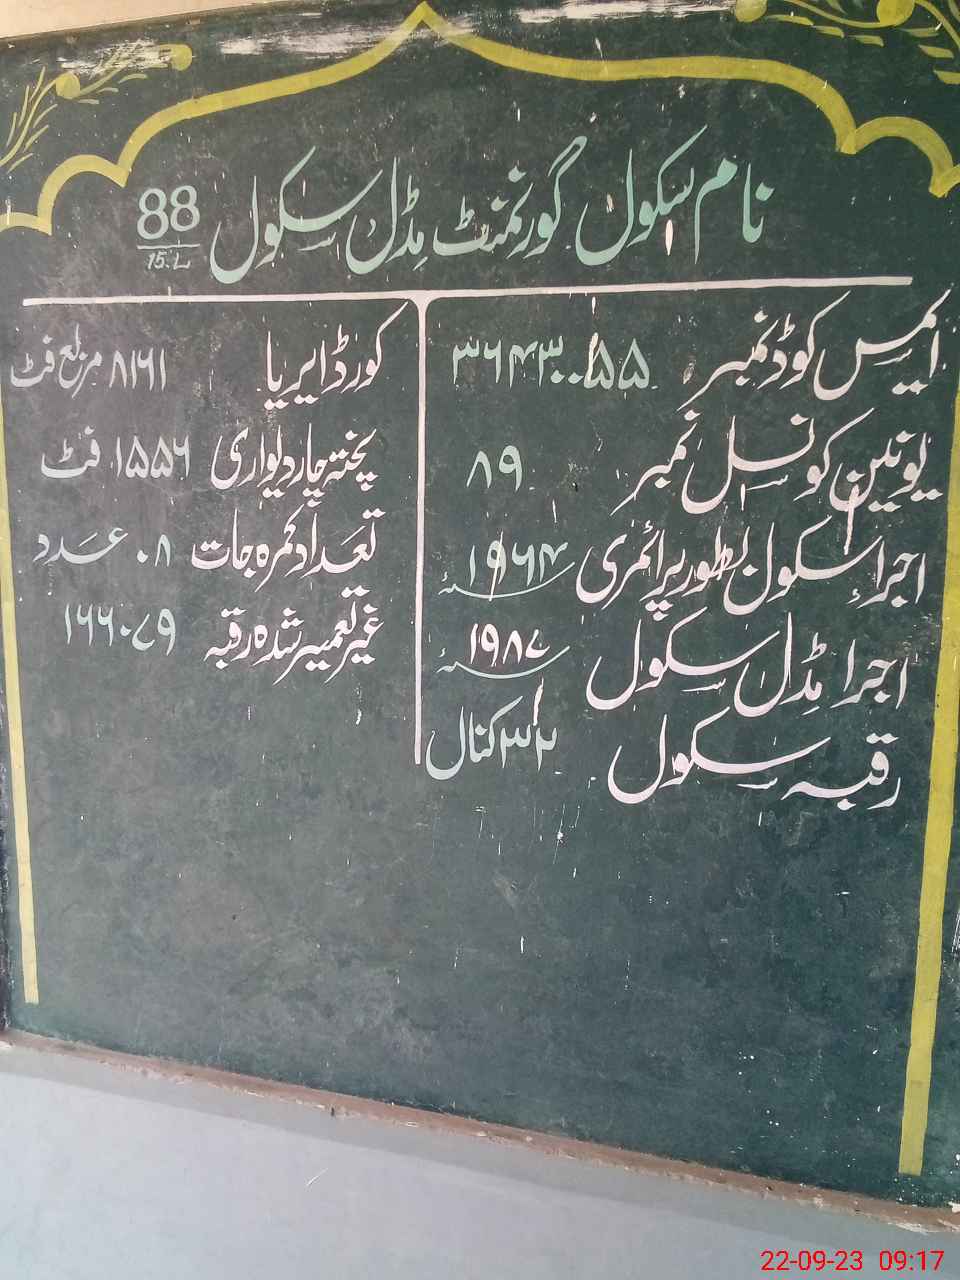 نام سکول گورنمنٹ مڈل سکول 88/15.L
ایمس کوڈ نمبر ۳۶۴۳۰۰۵۵
یونین کونسل نمبر ۸۹
اجراء سکول بطور پرائمری ۱۹۶۴ء
اجرا مڈل سکول ۱۹۸۷ء
رقبہ سکول ۳۲ کنال
کورڈ ایریا ۸۱۶۱ مربع فٹ
پختہ چار دیواری ۱۵۵۶ فٹ
تعداد کمرہ جات ۰۸ عدد
غیر تعمیر شدہ رقبہ ۱۶۶۰۷۹
22-09-23 09:17